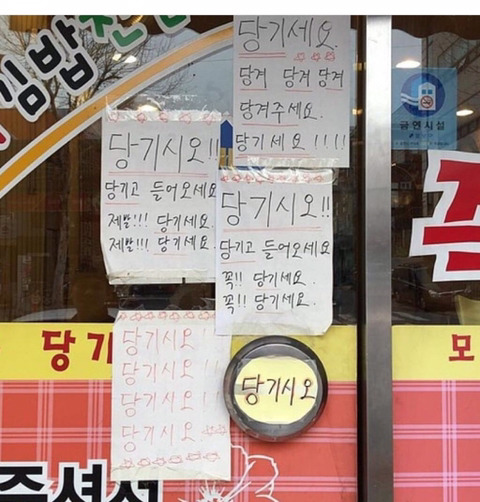 김밥천
당기세요.
당겨 당겨 당겨
당겨주세요.
당기세요!!!!
금연시설
당기시오!!
당기고 들어오세요
제발!!! 당기세요.
제발!!! 당기세요.
당기시오!!
당기고 들어오세요
꼭!! 당기세요.
꼭!! 당기세요.
당기
모
당기시오!
당기시오!
당기시오!
당기시오!
당기시오